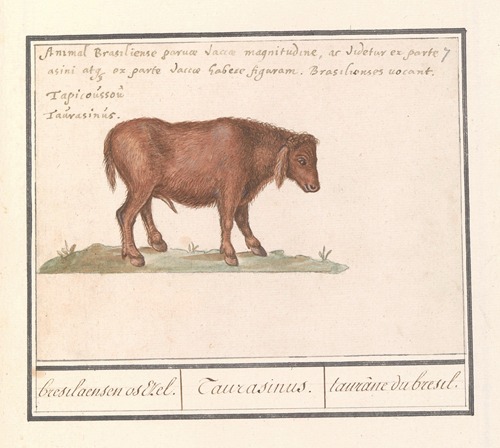 Animal Brasiliense paruæ Vaccæ magnitudine, ac Videtur ex parte 7
asini atq₃ ex parte Vaccæ habere figuram. Brasilienses vocant.
Tapicoússoú
Taúrasinús.
bresilaensen osEzel.
Taurasinus.
taurâne du bresil.